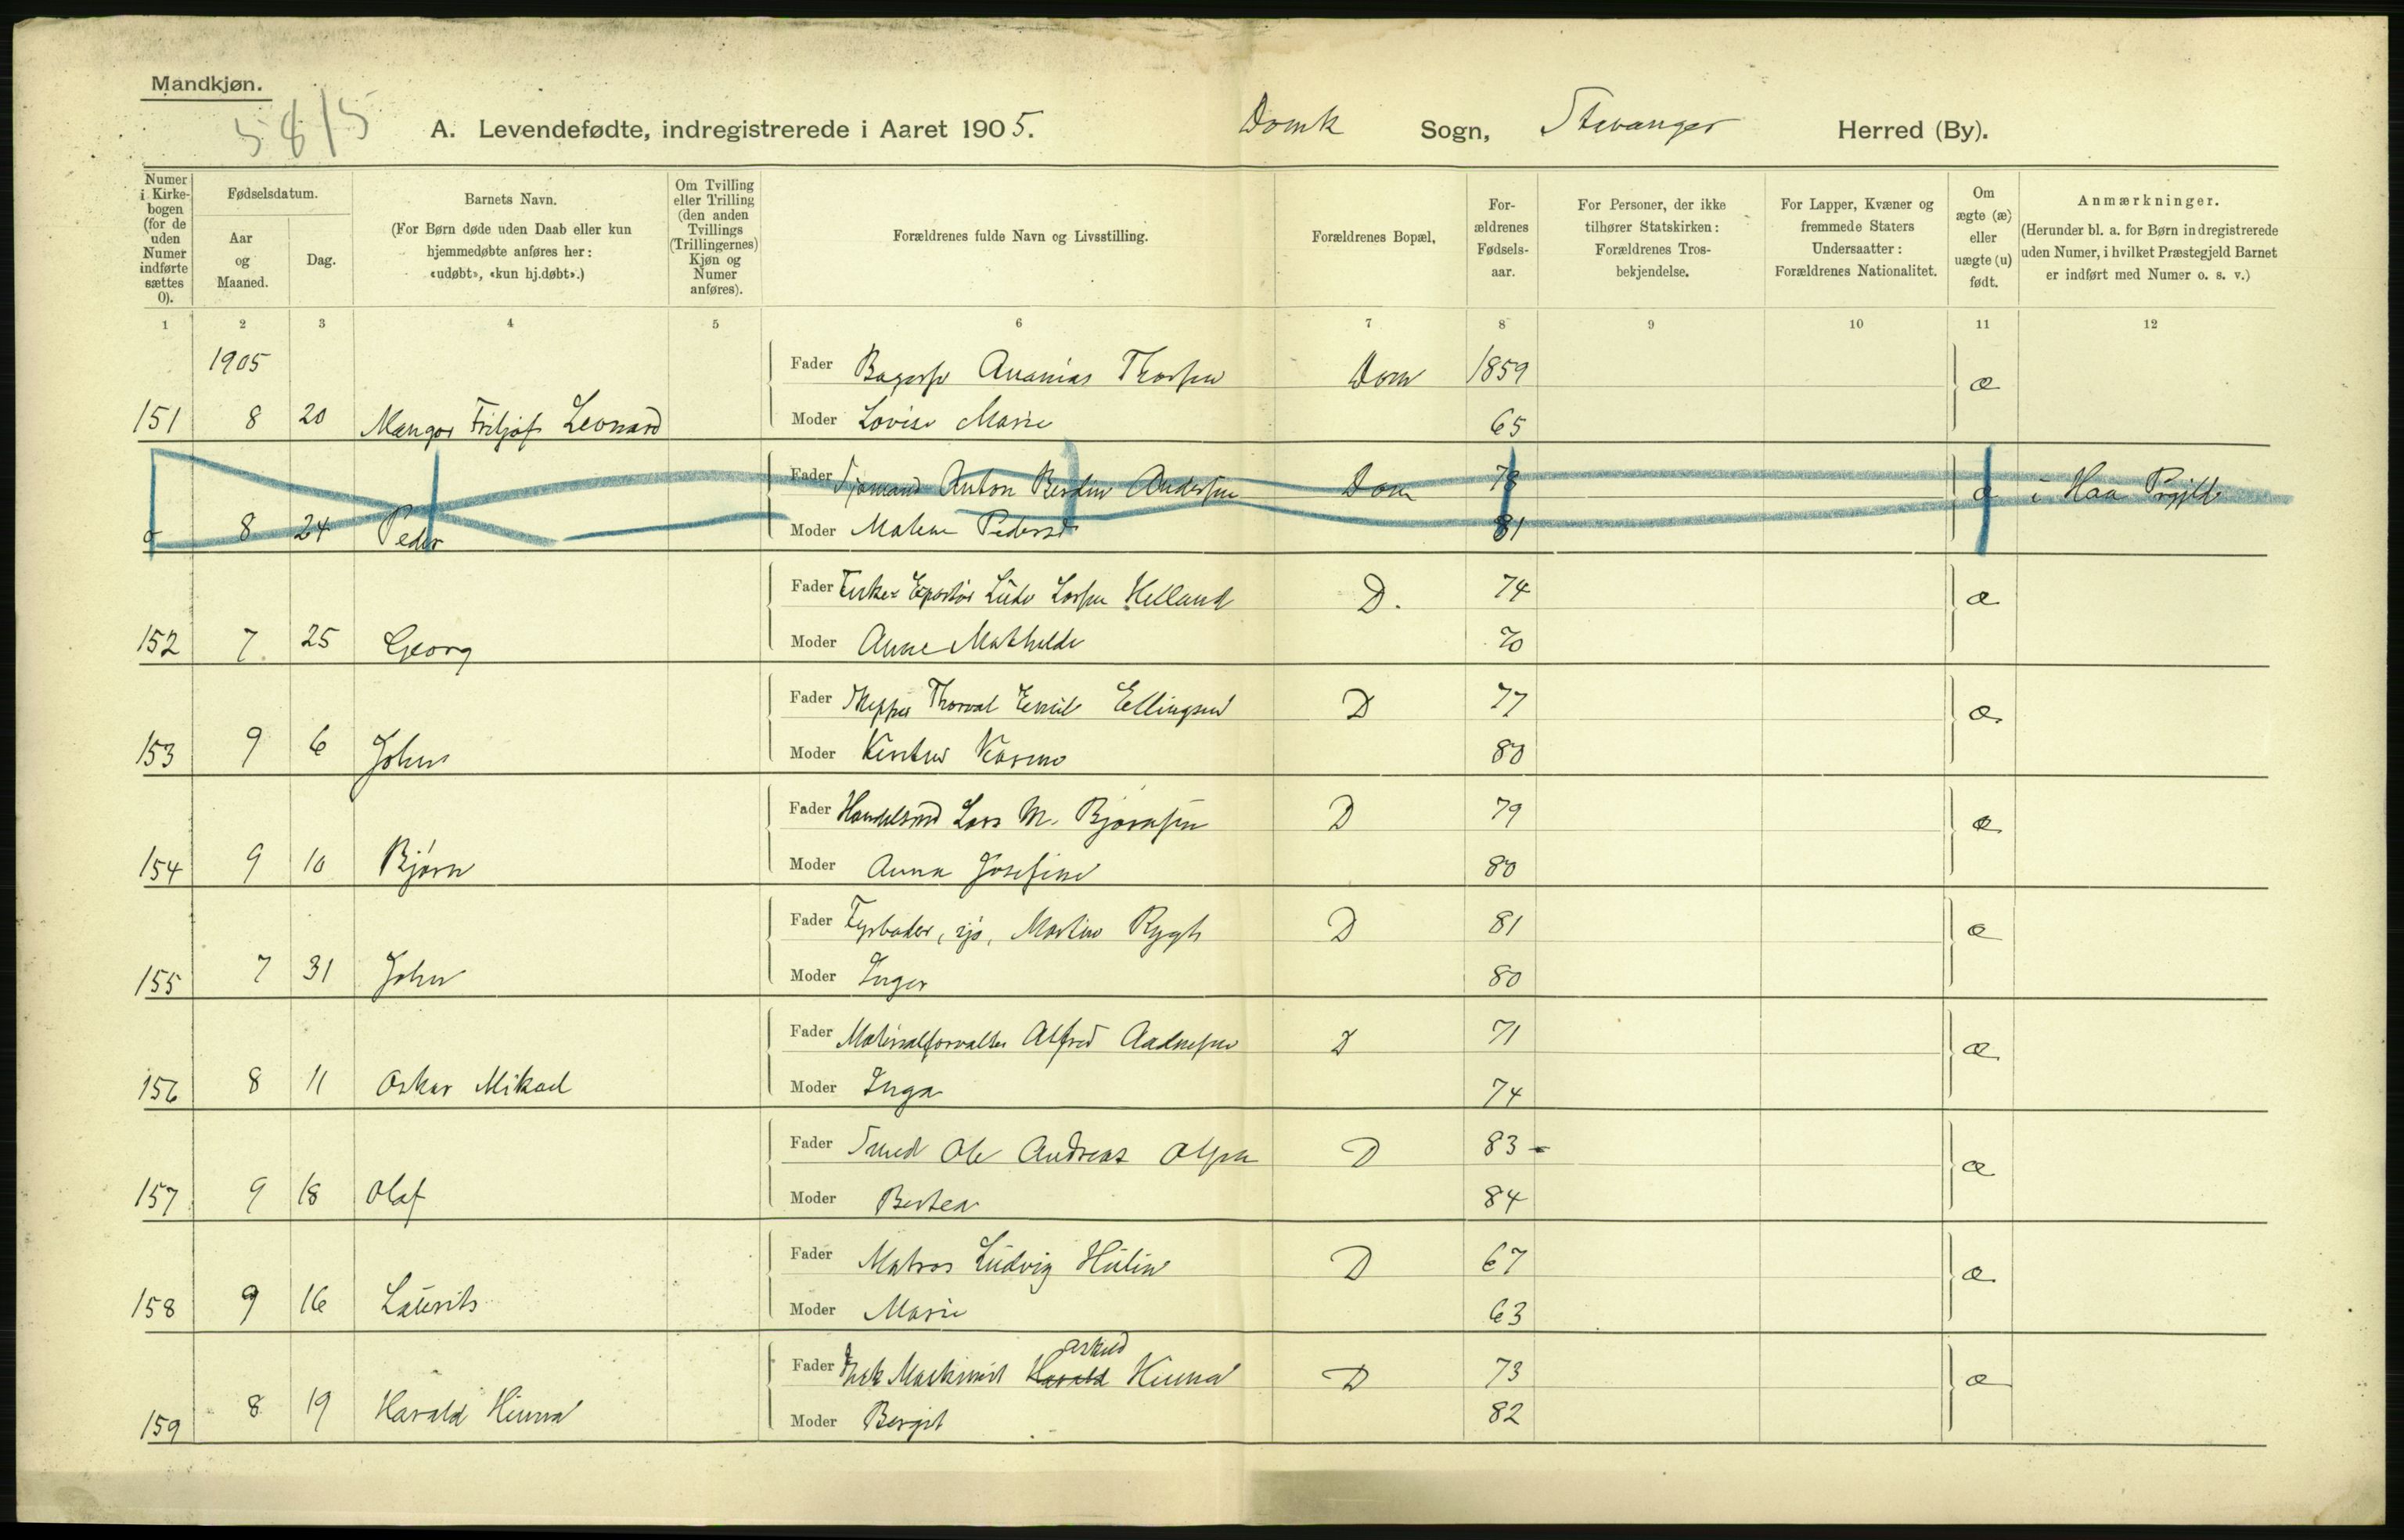 Mandkjøn.
5815
A. Levendefødte, indregistrerede i Aaret 1905. Domk Sogn, Stavanger Herred (By).
Numer i Kirke-bogen (for de uden Numer indførte sættes 0).
Fødselsdatum.
Aar og Maaned.
Dag.
Barnets Navn.
(For Børn døde uden Daab eller kun hjemmedøbte anføres her: «udøbt», «kun hj.døbt».)
Om Tvilling eller Trilling (den anden Tvillings (Trillingernes) Kjøn og Numer anføres).
Forældrenes fulde Navn og Livsstilling.
Forældrenes Bopæl,
For-ældrenes Fødsels-aar.
For Personer, der ikke tilhører Statskirken: Forældrenes Tros-bekjendelse.
For Lapper, Kvæner og fremmede Staters Undersaatter: Forældrenes Nationalitet.
Om ægte (æ) eller uægte (u) født.
Anmærkninger.
(Herunder bl. a. for Børn indregistrerede uden Numer, i hvilket Præstegjeld Barnet er indført med Numer o. s. v.)
1 2 3 4 5 6 7 8 9 10 11 12
1905 Fader Ananias Thorsen Dom 1859 æ
151 8 20 Mangor Fritjof Leonard Moder Lovise Marie 65
Fader Sjømand Anton Berdin Andersen Dom 78 æ i Haa Prgjld
0 8 24 Peder Moder Malene Pedersd 81
Fader Lars Helland D. 74 æ
152 7 25 Georg Moder Anne Mathilde 70
Fader Thorval Emil Ellingsen D 77 æ
153 9 6 John Moder 80
Fader Handelsmd Lars M. Bjørnsen D 79 æ
154 9 10 Bjørn Moder Anna Josefine 80
Fader Fyrbøder, Martin Rygh D 81 æ
155 7 31 John Moder Inger 80
Fader Materialforvalter Alfred Aadnesen D 71 æ
156 8 11 Oskar Mikael Moder Inga 74
Fader Smed Ole Andreas Olsen D 83 - æ
157 9 18 Olaf Moder Bertea 84
Fader Matros Ludvig Hulin D 67 æ
158 9 16 Laurits Moder Marie 63
Fader Maskinist Harald Hinna D 73 æ
159 8 19 Harald Hinna Moder Bergit 82